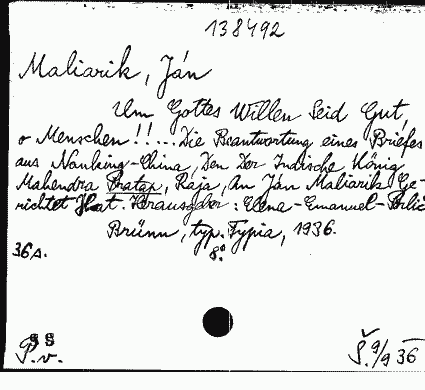 138492
Maliarik, Ján
Um Gottes Willen Seid Gut,
o Menschen!!... Die Beantwortung eines Briefes
aus Nanking-China, Den Der Indische König
Mahendra Pratap, Rája, An Ján Maliarik Ge-
richtet Hat. Herausgeber: Elena-Emanuel-
Brünn, typ. Typia, 1936.
36A. 8°
P.v.
Š. 9/9 36